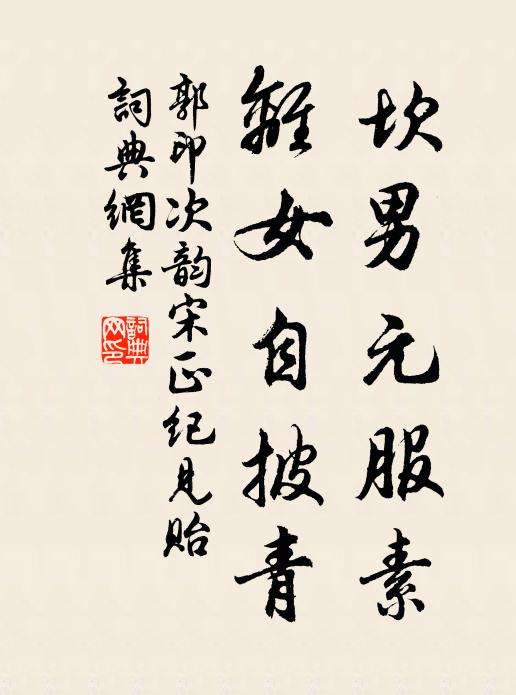 坎男元服素
離女自披青
郭印次韵宋正纪見贻
詞典網集
詞典
网印